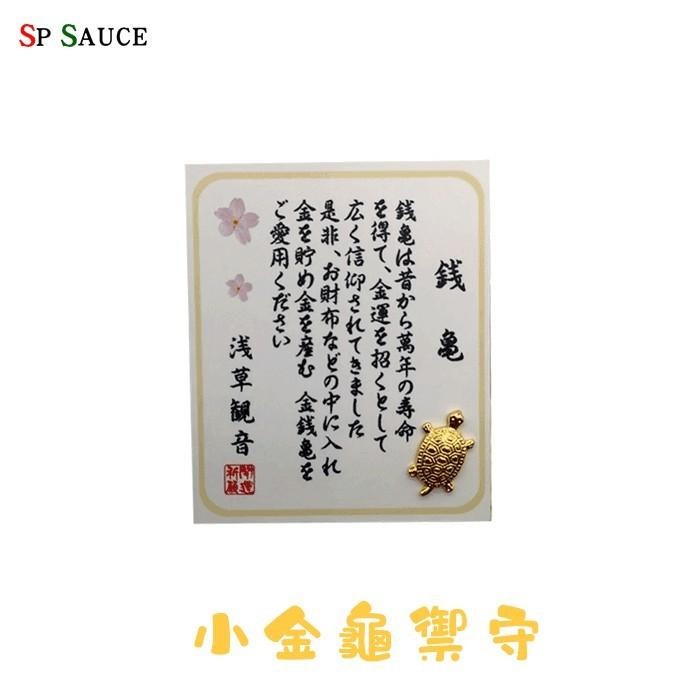 SP SAUCE
銭亀
銭亀は昔から萬年の寿命
を得て、金運を招くとして
広く信仰されてきました
是非、お財布などの中に入れ
金を貯め金を産む 金銭亀を
ご愛用ください
浅草観音
小金龜禦守